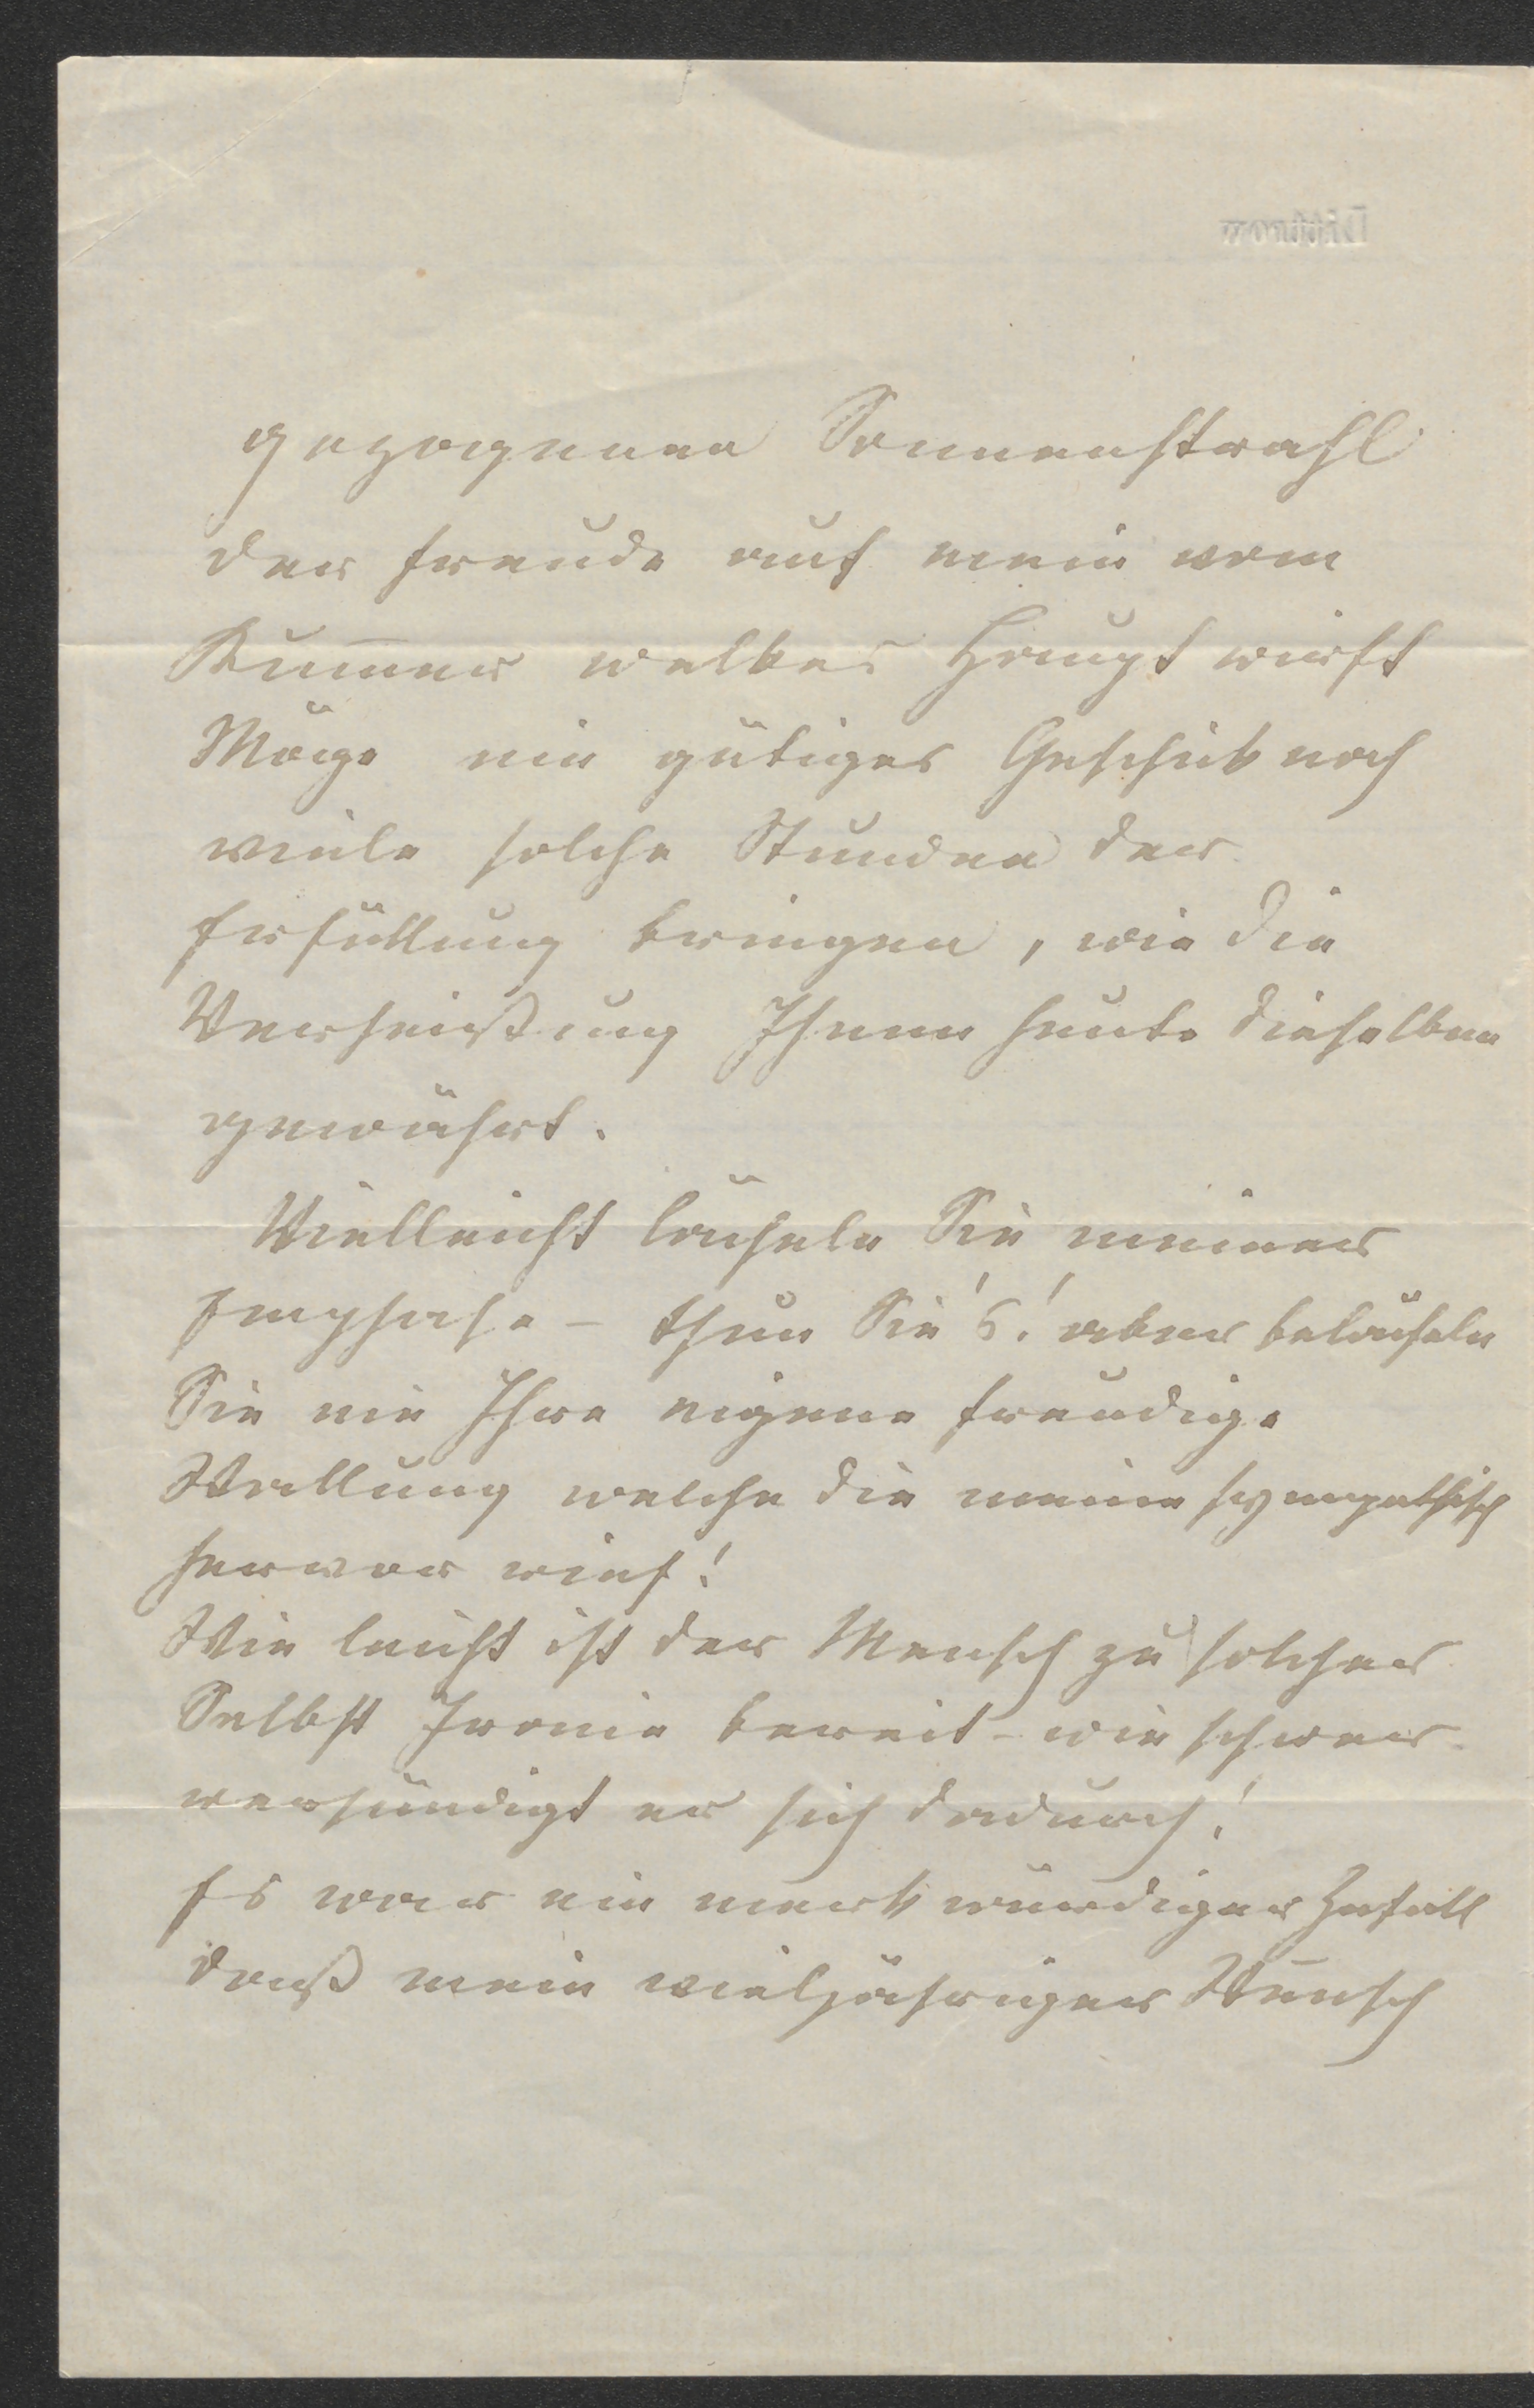 gezogenen Sonnenstrahl
der Freude auf mein vom
Kum̅er welkes Haupt wirft
Möge ein gütiges Geschik noch
viele solche Stunden der
Erfüllung bringen, wie die
Verheißung Ihnen heute dieselben
gewährt.
Vielleicht lächeln Sie meiner
Emphase – thun Sie's! aber belächeln
Sie nie Ihre eigene freudige
Wallung welche die meine sympathisch
hervor rief!
Wie leicht ist der Mensch zu solcher
Selbst Ironie bereit – wie schwer
versündigt er sich dadurch!
Es war ein merkwürdiger Zufall
daß mein vieljähriger Wunsch